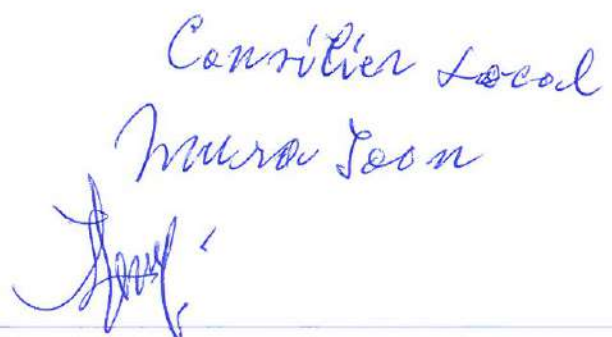 Consilier Local
Mura Ioan